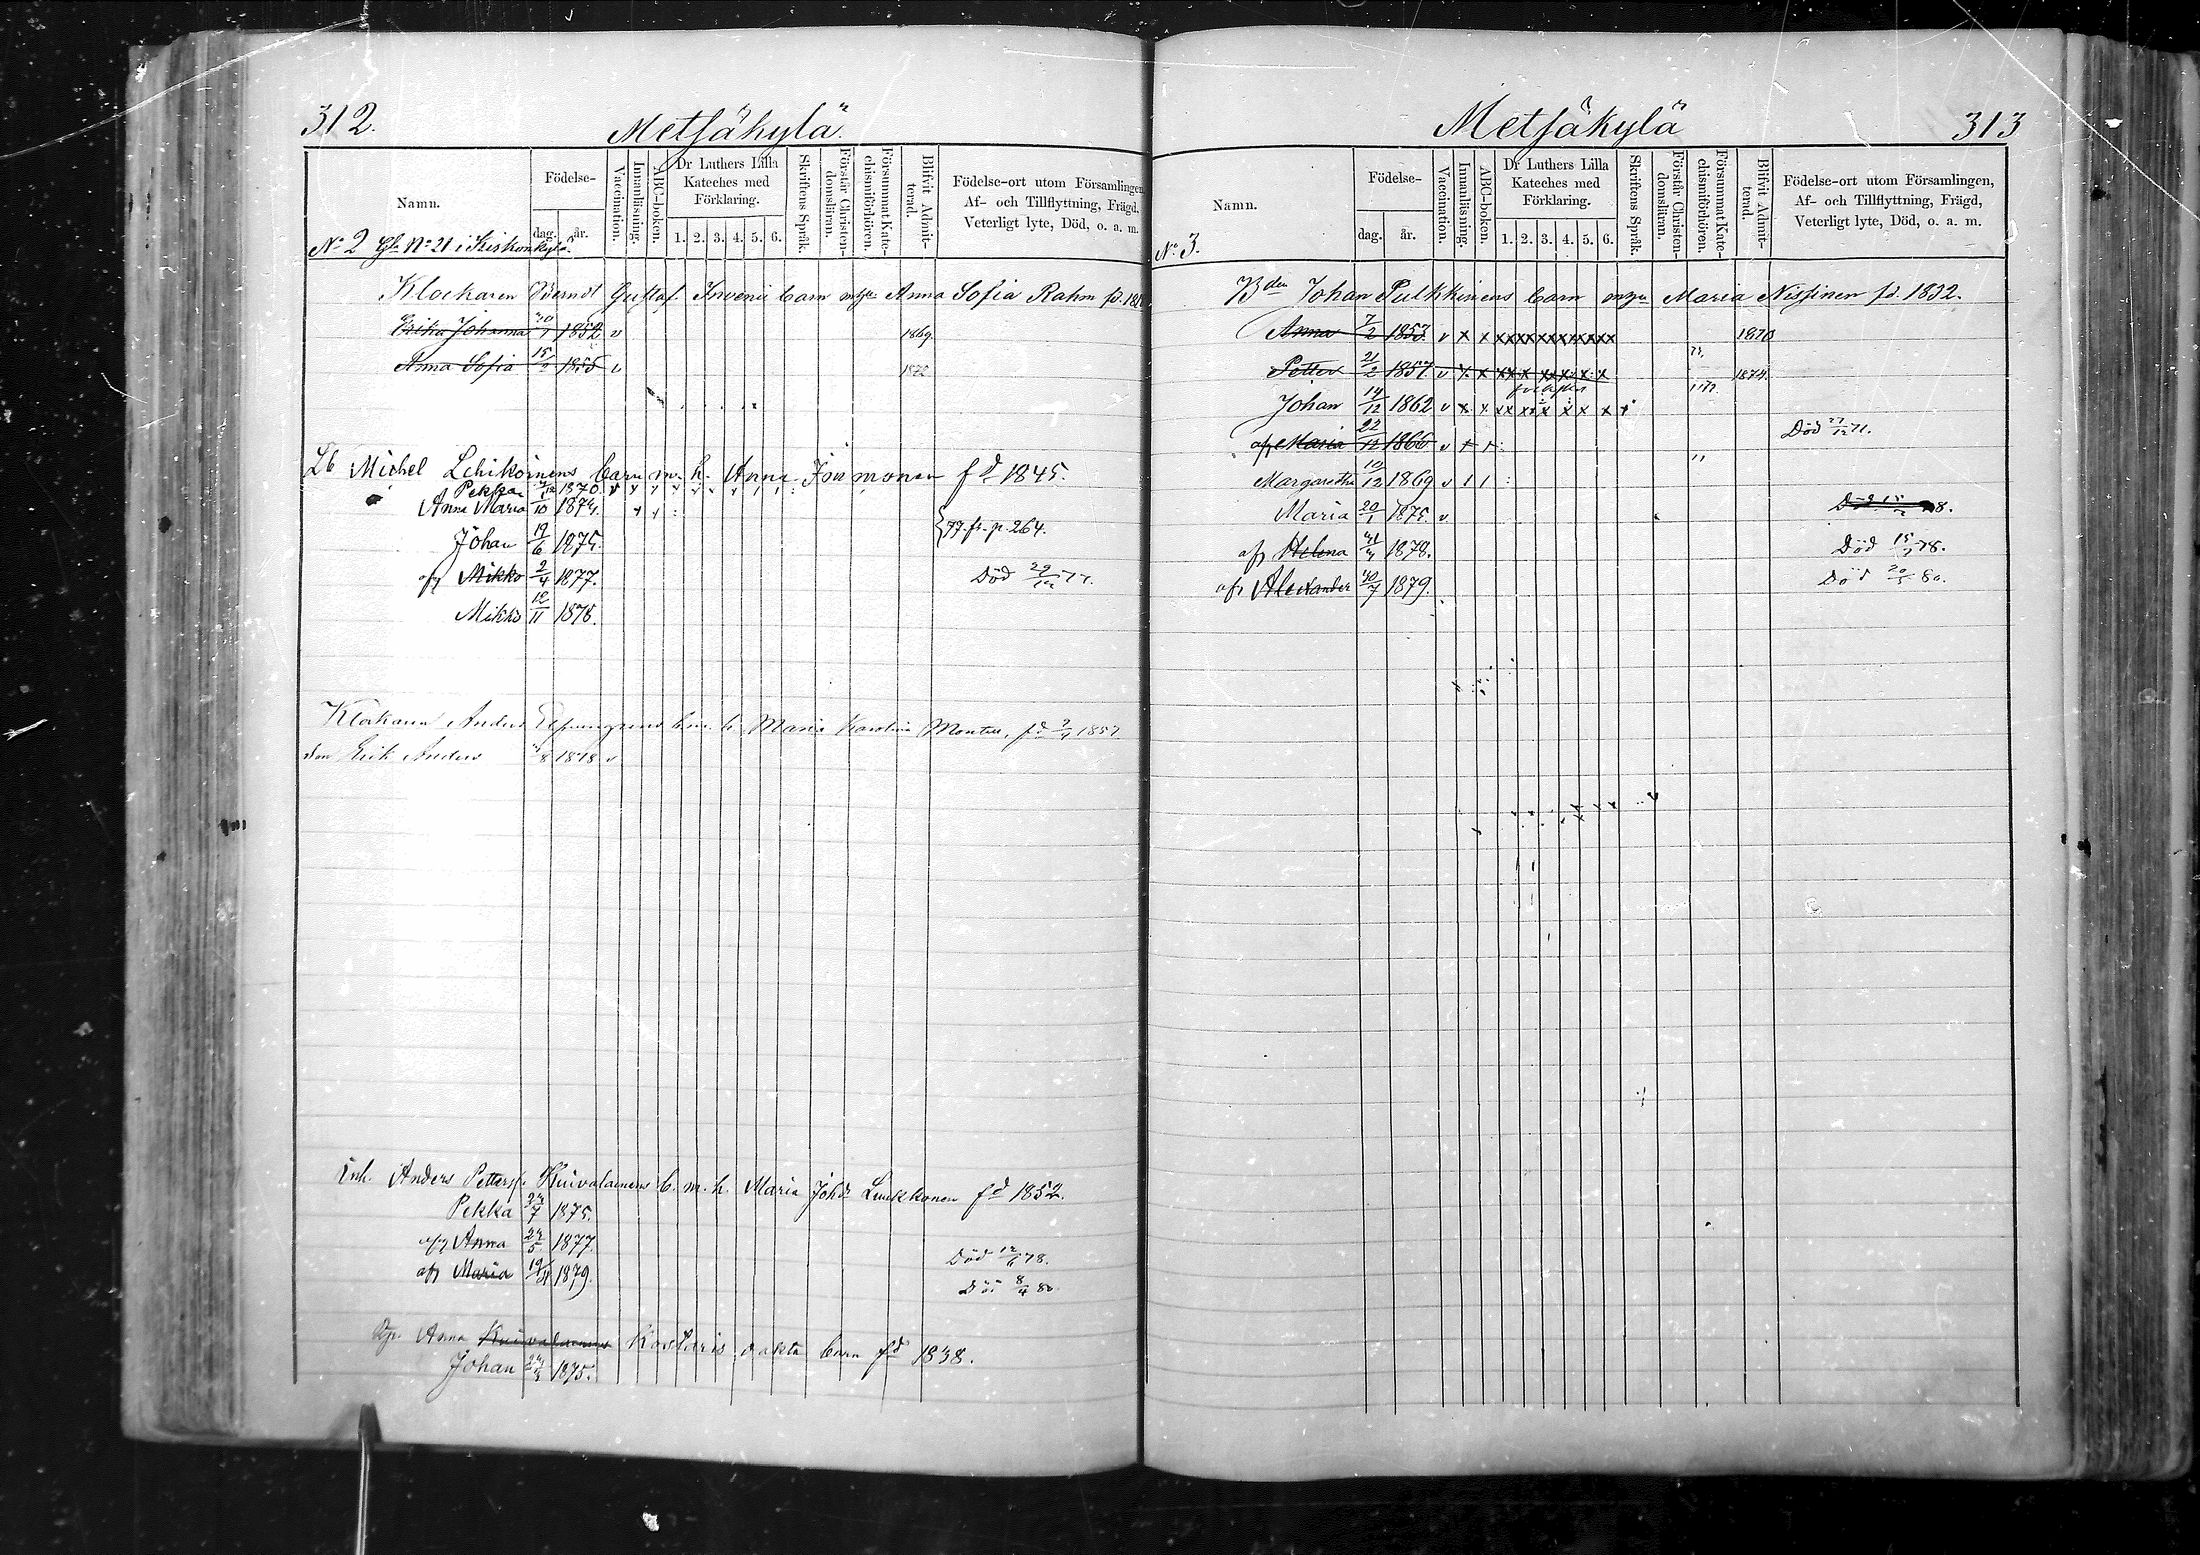 312.
Metsäkylä.
Namn.
Födelse-
dag. år.
Vaccination.
Innanläsning.
ABC-boken.
Dr Luthers Lilla
Kateches med
Förklaring.
1. 2. 3. 4. 5. 6.
Skriftens Språk.
Förstår Christen-
domsläran.
Försummat Kate-
chismiförhören.
Blifvit Admit-
terad.
Födelse-ort utom Församlingen,
Af- och Tillflyttning, Frägd,
Veterligt lyte, Död, o. a. m.
No 2 Gl. No 21 i Kiskonkylä.
Klockaren Berndt Gustaf Invenii barn Anna Sofia Rahm
Erika Johanna 30/1 1852 v 1869.
Anna Sofia 15/2 1855 v 1872
Lb Michel Lehikoinens barn m. h. Anna fd 1845.
Pekka 1870. v x x x x x x
Anna Maria /10 1874. x x :
Johan 19/6 1875. }77. fr. p. 264.
afg Mikko 2/4 1877. Död 29/12 77.
Mikko 12/11 1878.
Klockaren Anders m. h. Maria Karolina fd 1857
son Erik Anders /8 1878 v
Inh. Anders Petters Kuivalainens b. m. h. Maria Johdr Luukkonen fd 1852.
Pekka /7 1875.
afg Anna 24/5 1877. Död 12/6 78.
afg Maria 19/11 1879. Död 8/4 80.
Anna Kuivalainens Kostaris oäkta barn fd 1838.
Johan 1875.
Metsäkylä
313
Namn.
Födelse-
dag. år.
Vaccination.
Innanläsning.
ABC-boken.
Dr Luthers Lilla
Kateches med
Förklaring.
1. 2. 3. 4. 5. 6.
Skriftens Språk.
Förstår Christen-
domsläran.
Försummat Kate-
chismiförhören.
Blifvit Admit-
terad.
Födelse-ort utom Församlingen,
Af- och Tillflyttning, Frägd,
Veterligt lyte, Död, o. a. m.
No 3.
Bden Johan Pulkkinens barn Maria Nissinen fd. 1832.
Anna 7/2 1853. v x x xxxxxxxxxxxx 1870
Petter 21/2 1857 v x x xx x xxx x x 1874.
Johan 14/12 1862 v x x xx xx x x x x x
afg Maria 22/12 1866 v + + : Död 27/12 71.
Margaretha 10/12 1869 v 1 1 :
Maria 20/1 1875. v Död 15/ 78.
afg Helena 1878. Död 15/ 78.
afg Alexander 30/7 1879. Död 20/ 80.